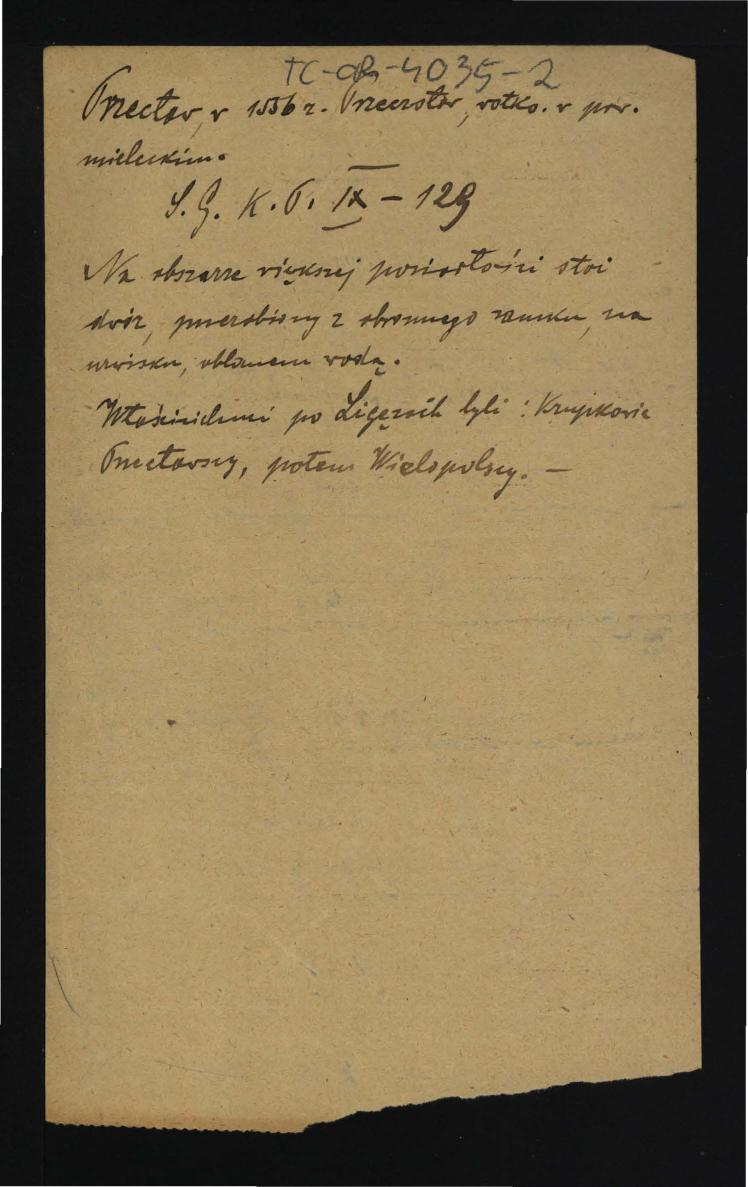 TC-OR-4035-2
Przecław, w 1536 r. Przeczslaw, wstko. w pow.
mieleckim.
S. G. K. P. IX – 129
Na obszarze większej posiadłości stoi
dwór, przerobiony z obronnego zamku, na
urwisku, oblanem wodą.
Właścicielami po Ligęzach byli : Krupkowie
Przecławscy, potem Wielopolscy. –